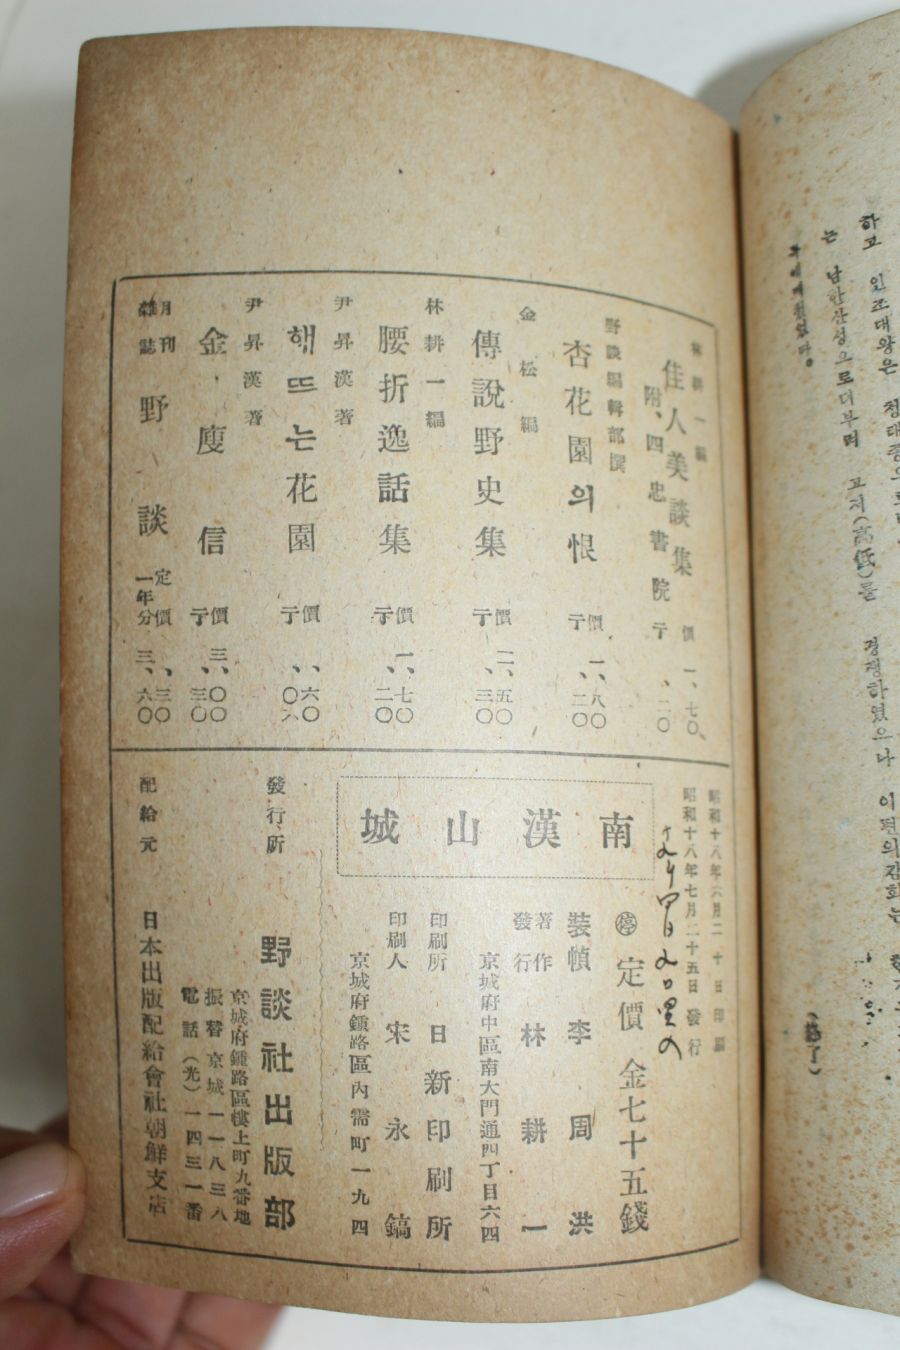 하고 인조대왕은
는 남한산성으로더부터 고저(高低)를
(終了)
林耕一編
佳人美談集 價 一、七〇、
附、四忠書院 亍 、二〇
野談編輯部撰
杏花園의恨 價 一、八〇
亍 、二〇
金松編
傳說野史集 價 二、五〇
亍 、三〇
林耕一編
腰折逸話集 價 一、七〇
亍 、二〇
尹昇漢著
해뜨는花園 價 、六〇
亍 、〇六
尹昇漢著
金庾信 價 三、〇〇
亍 、三〇
月刊雜誌 野談 定價 、三〇
一年分 三、六〇
昭和十八年六月二十日印刷
昭和十八年七月二十五日發行
南漢山城
㊡ 定價 金七十五錢
裝幀 李周洪
著作發行 林耕一
京城府中區南大門通四丁目六四
印刷所 日新印刷所
印刷人 宋永鎬
京城府鍾路區內需町一九四
發行所 野談社出版部
京城府鍾路區樓上町九番地
振替京城一一八三八
電話(光)一四三一番
配給元 日本出版配給會社朝鮮支店